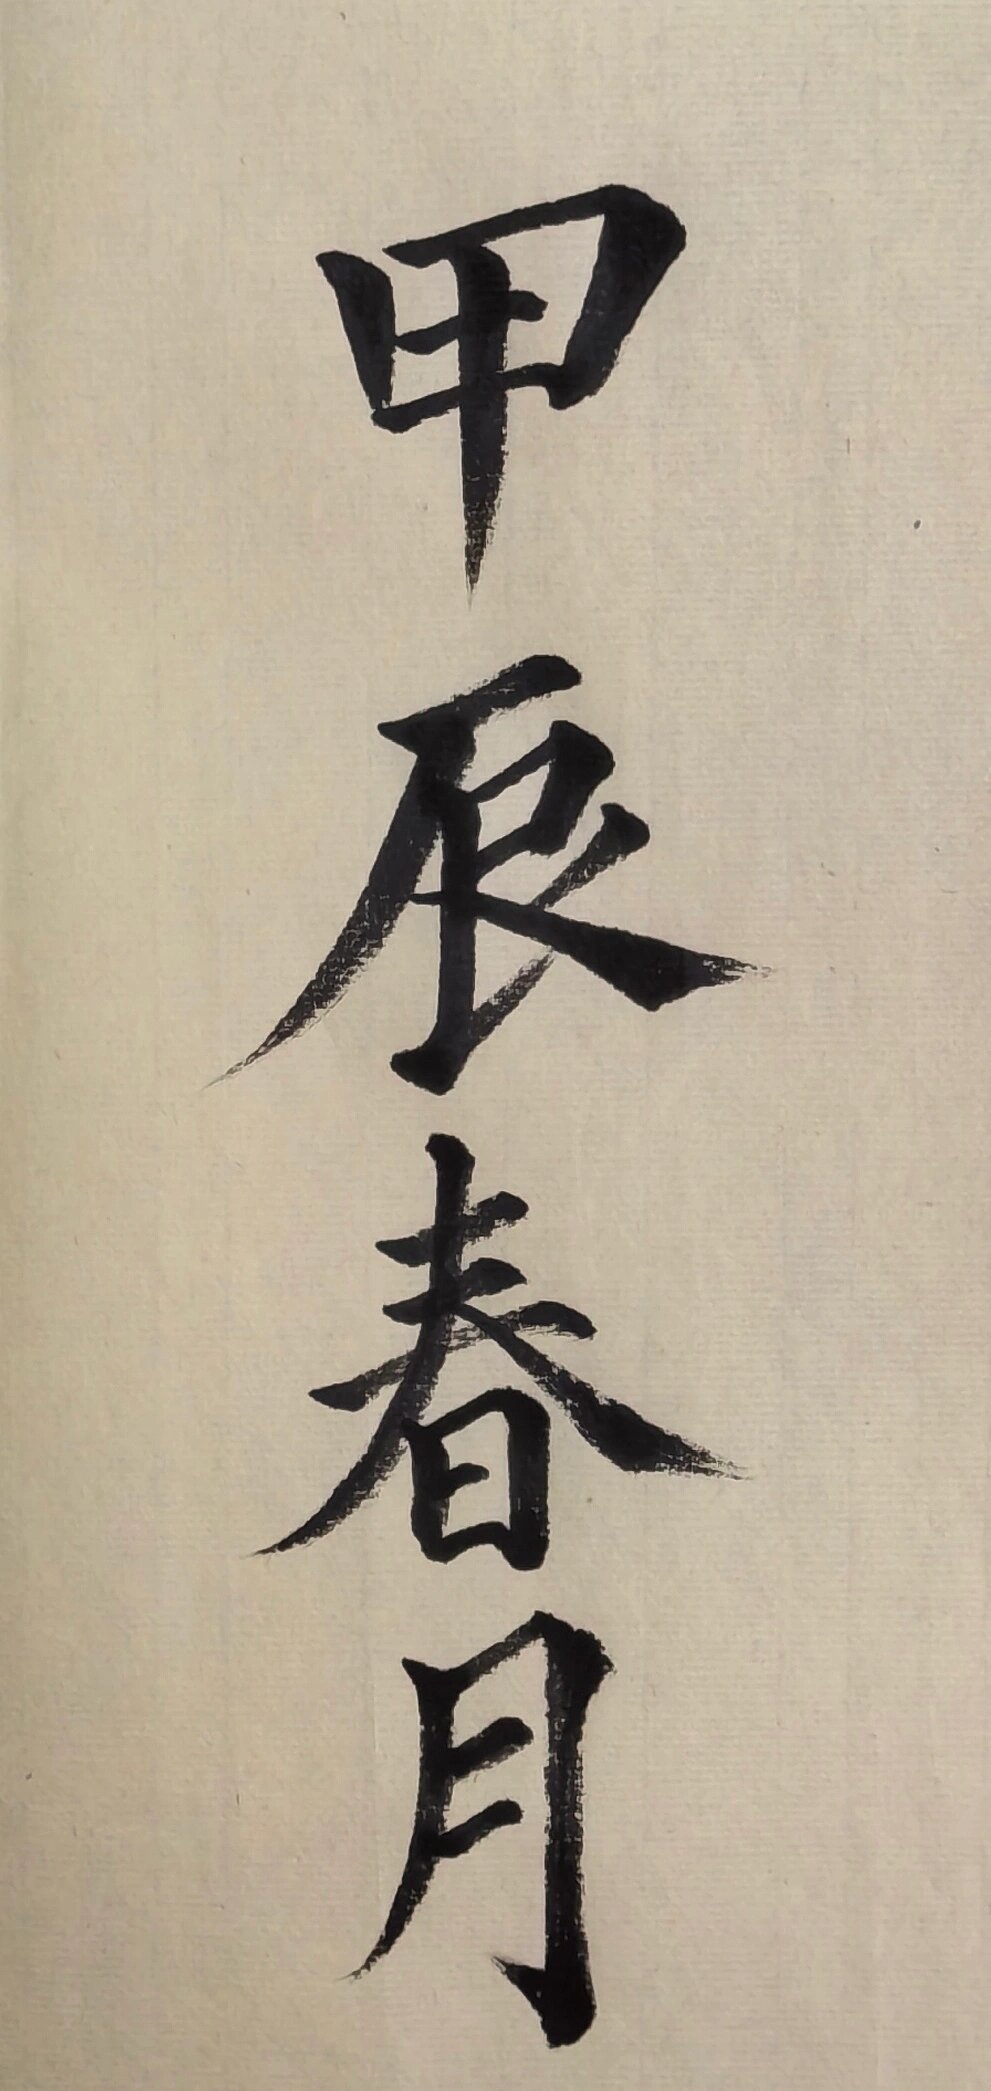 甲辰春月